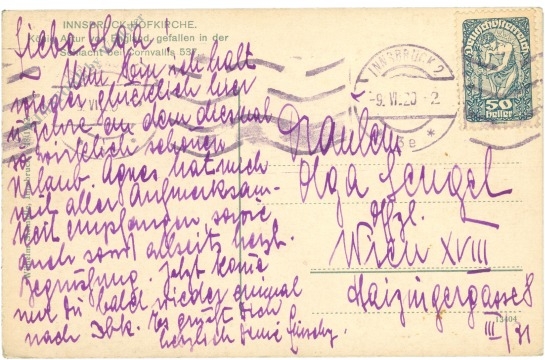 INNSBRUCK-HOFKIRCHE.
König Artur von England, gefallen in der
Schlacht bei Cornvallis 53
Liebe Olga!
Nun bin ich halt
wieder glücklich hier
u. zehre an dem diesmal
so wirklich schönen
Urlaub. Agnes hat mich
mit aller Aufmerksam-
keit empfangen, sowie
auch sonst allseits herzl.
Begrüßung. Jetzt komme
nur Du bald wieder einmal
nach Ibk. Es grüßt Dich
herzlich Deine
INNSBRUCK 2
-9. VI. 20 -2
Deutschösterreich
50
heller
Fräulein
Olga Lengel
Wien XVIII
Haizingergasse 8
III/31
13404